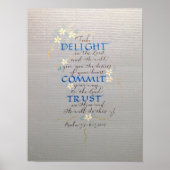 Take
DELIGHT
in the Lord
and He will
give you the desires
of your heart
COMMIT
your way
to the Lord
TRUST
in Him and
He will do this